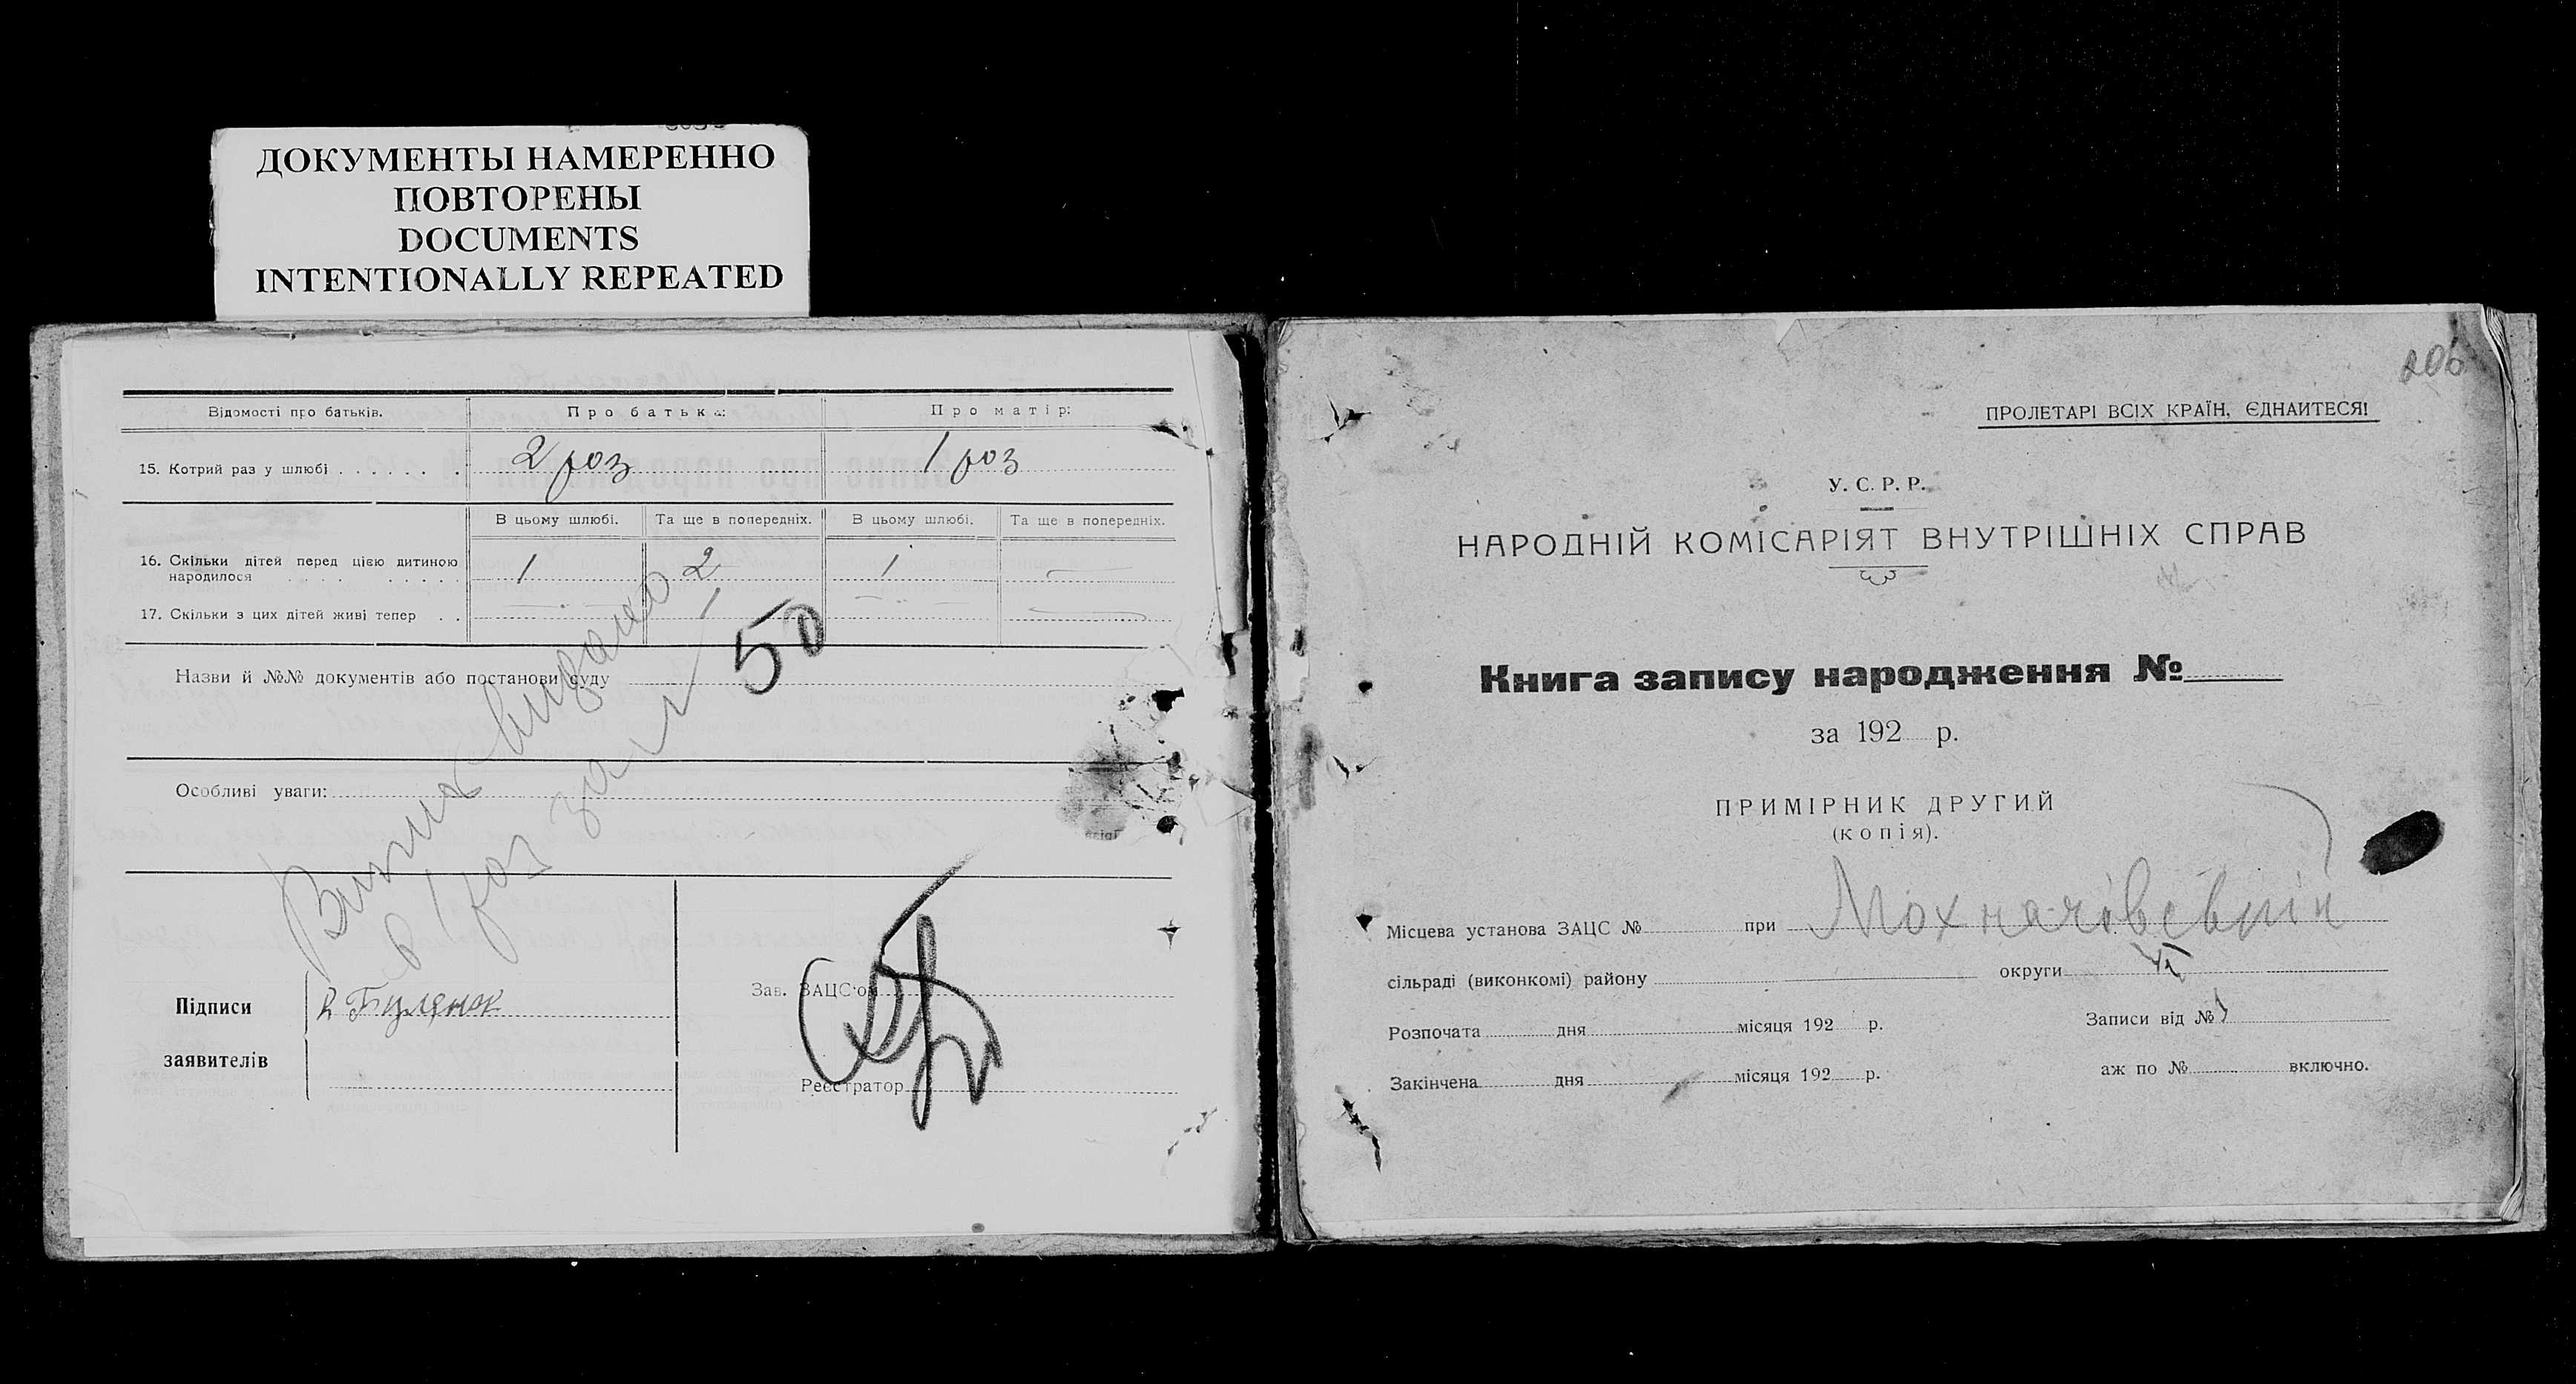 ДОКУМЕНТЫ НАМЕРЕННО
ПОВТОРЕНЫ
DOCUMENTS
INTENTIONALLY REPEATED
Відомості про батьків. Про батька: Про матір:
15. Котрий раз у шлюбі 2 роз 1 роз
В цьому шлюбі. Та ще в попередніх. В цьому шлюбі. Та ще в попередніх.
16. Скільки дітей перед цією дитиною
народилося 1 2 1 —
17. Скільки з цих дітей живі тепер — 1 — —
50
Назви й №№ документів або постанови суду
Особливі уваги:
Підписи
заявителів
Зав. ЗАЦС'ом
Реєстратор
206
ПРОЛЕТАРІ ВСІХ КРАЇН, ЄДНАЙТЕСЯ!
У. С. Р. Р.
НАРОДНІЙ КОМІСАРІЯТ ВНУТРІШНІХ СПРАВ
Книга запису народження №
за 192 р.
ПРИМІРНИК ДРУГИЙ
(копія).
Місцева установа ЗАЦС № при
сільраді (виконкомі) району округи
Розпочата дня місяця 192 р. Записи від № 1
Закінчена дня місяця 192 р. аж по № включно.